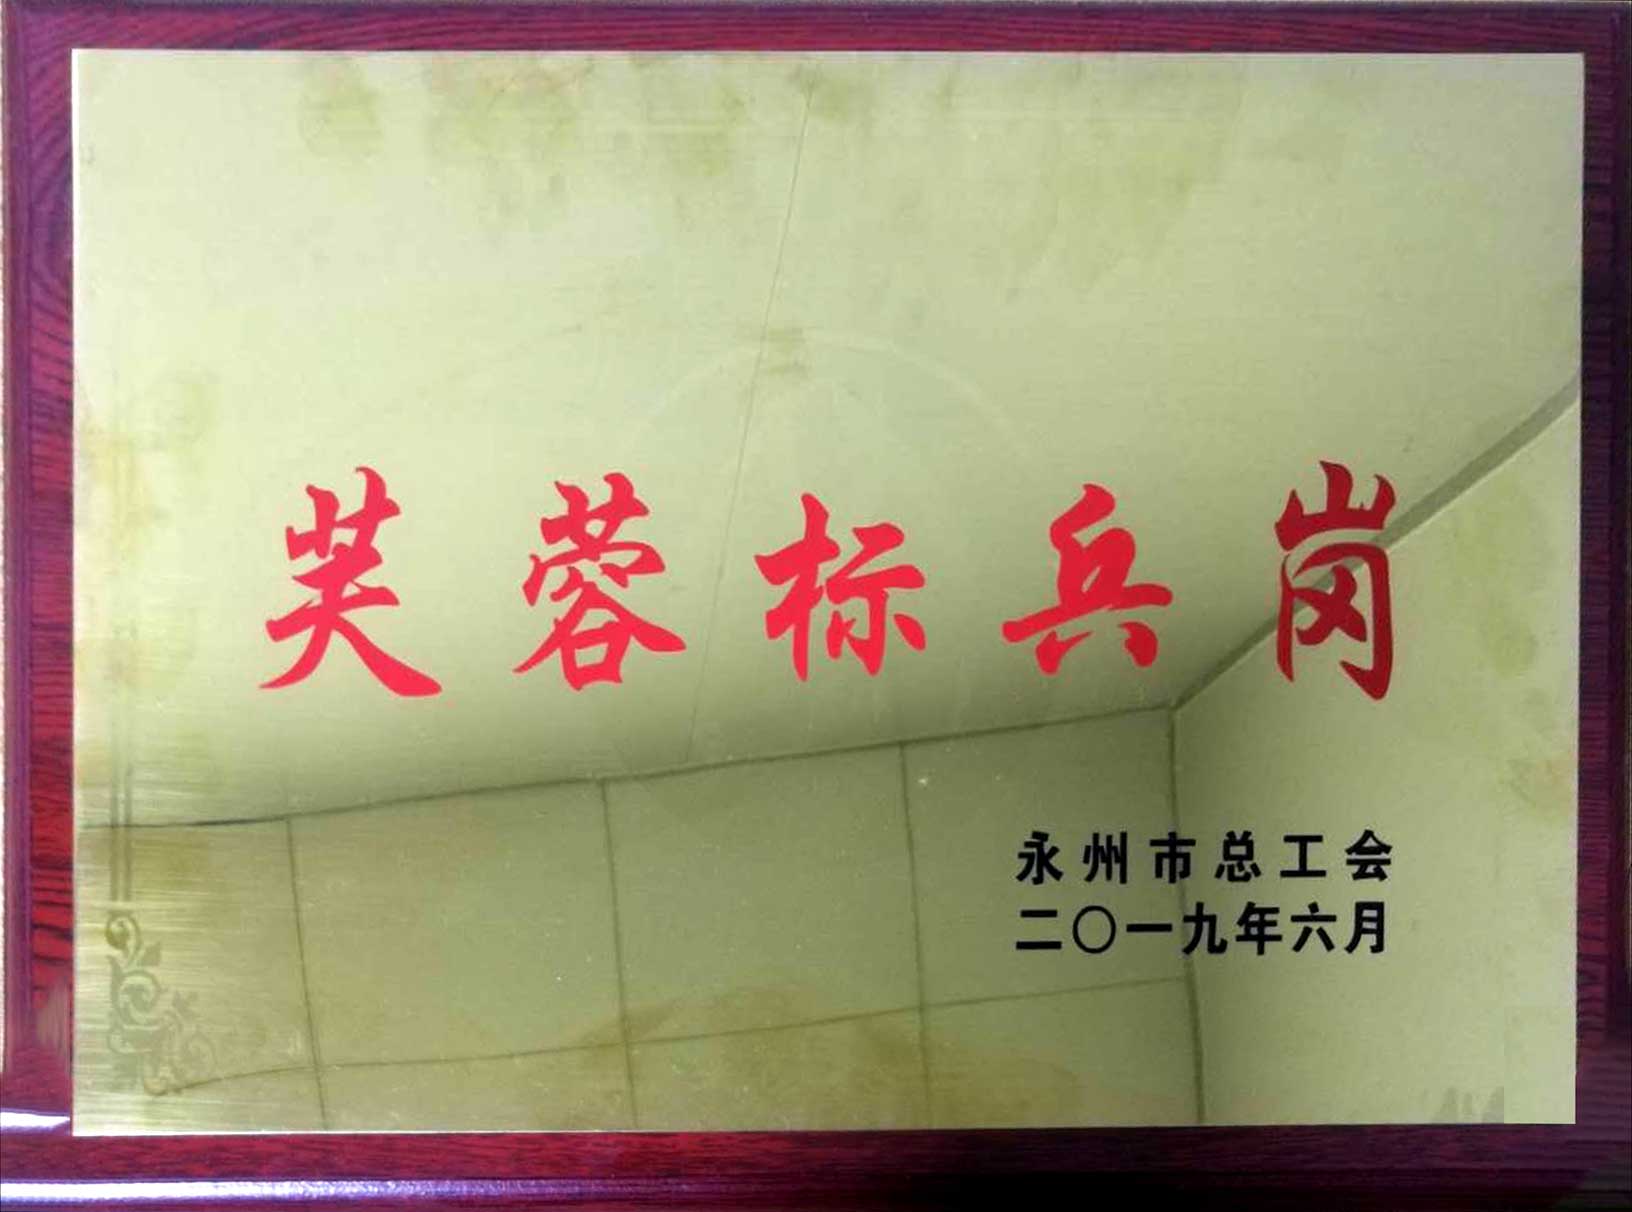 芙蓉标兵岗
永州市总工会
二〇一九年六月